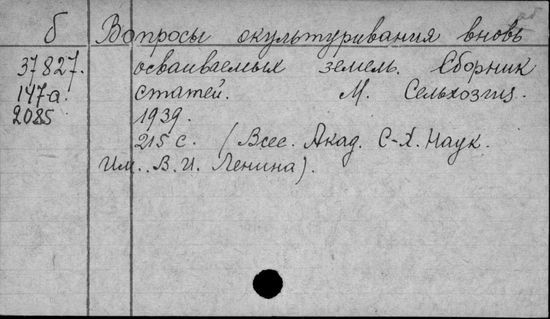 б Вопросы окультуривания вновь
37827. осваиваемых земель. Сборник
147а. статей. М. Сельхозгиз.
2085 1939.
215 с. (Всес. Акад. С-Х. Наук.
Им. В. И. Ленина).